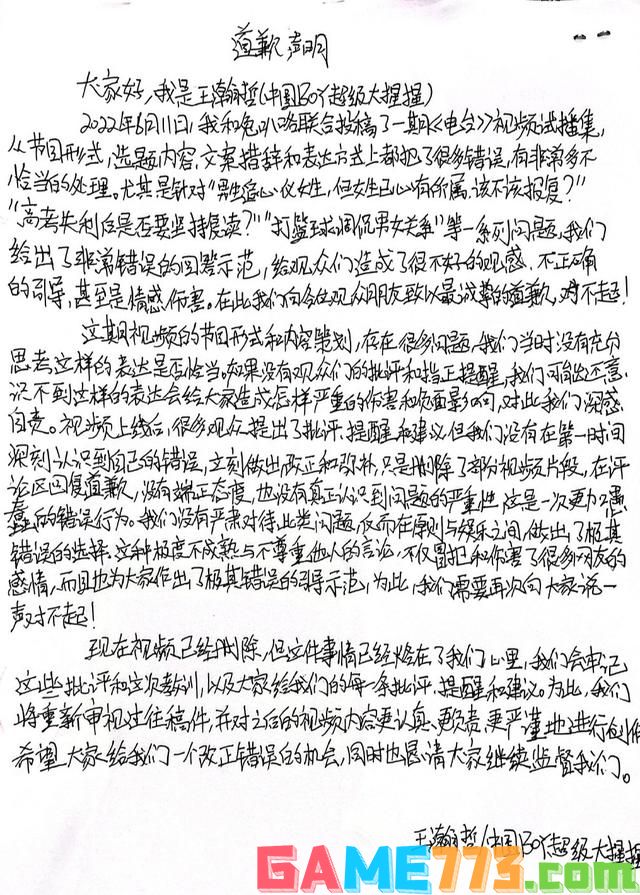 道歉声明
大家好,我是王瀚哲(中国BOY超级大猩猩)
2022年6月11日,我和兔叭咯联合投稿了一期《电台》视频试播集,
从节目形式,选题内容,文案措辞和表达方式上都犯了很多错误,有非常多不
恰当的处理。尤其是针对“男生追心仪女生,但女生已心有所属,该不该报复?”
“高考失利后是否要坚持复读?”“打篮球调侃男女关系”等一系列问题,我们
给出了非常错误的回答示范,给观众们造成了很不好的观感、不正确
的引导,甚至是情感伤害。在此我们向各位观众朋友致以最诚挚的道歉,对不起!
这期视频的节目形式和内容策划,存在很多问题,我们当时没有充分
思考这样的表达是否恰当。如果没有观众们的批评和指正提醒,我们可能还意
识不到这样的表达会给大家造成怎样严重的伤害和负面影响,对此我们深感
自责。视频上线后,很多观众提出了批评、提醒和建议,但我们没有在第一时间
深刻认识到自己的错误,立刻做出改正和弥补,只是删除了部分视频片段,在评
论区回复道歉,没有端正态度,也没有真正认识到问题的严重性,这是一次更加愚
蠢的错误行为。我们没有严肃对待此类问题,反而在原则与娱乐之间,做出了极其
错误的选择,这种极度不成熟与不尊重他人的言论,不仅冒犯和伤害了很多网友的
感情,而且也为大家作出了极其错误的引导示范,为此,我们需要再次向大家说一
声对不起!
现在视频已经删除,但这件事情已经烙在了我们心里,我们会牢记
这些批评和这次教训,以及大家给我们的每一条批评、提醒和建议。为此,我们
将重新审视过往稿件,并对之后的视频内容更认真、更负责、更严谨地进行创作
希望大家给我们一个改正错误的机会,同时也恳请大家继续监督我们。
王瀚哲/中国BOY超级大猩猩
GAME773.com